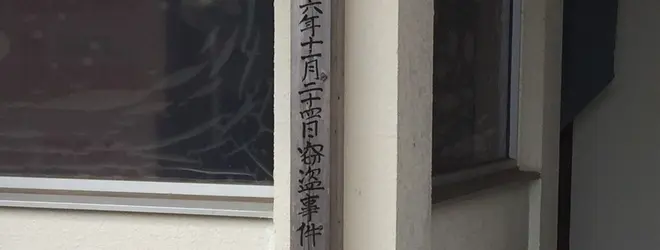 六年十一月二十四日窃盗事件